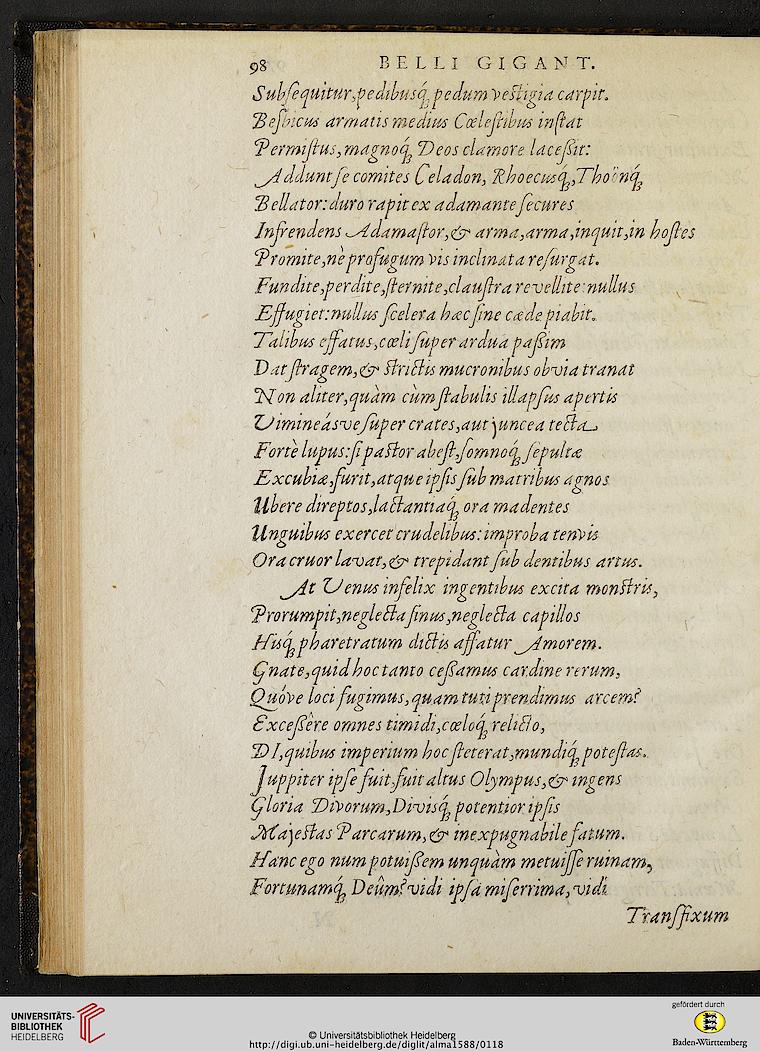 98 BELLI GIGANT.
Subsequitur, pedibusq́ꝫ pedum vestigia carpit.
Besbicus armatis medius Cœlestibus instat
Permistus, magnoq́ꝫ Deos clamore lacessit:
Addunt se comites Celadon, Rhoecusq́ꝫ, Thoönq́ꝫ
Bellator: duro rapit ex adamante secures
Infrendens Adamastor, & arma, arma, inquit, in hostes
Promite, nè profugum vis inclinata resurgat.
Fundite, perdite, sternite, claustra revellite: nullus
Effugiet: nullus scelera hæc sine cæde piabit.
Talibus effatus, cœli super ardua passim
Dat stragem, & strictis mucronibus obvia tranat
Non aliter, quàm cùm stabulis illapsus apertis
Vimineásve super crates, aut juncea tecta
Fortè lupus: si pastor abest, somnoq́ꝫ sepultæ
Excubiæ, furit, atque ipsis sub matribus agnos
Ubere direptos, lactantiaq́ꝫ ora madentes
Unguibus exercet crudelibus: improba tenvis
Ora cruor lavat, & trepidant sub dentibus artus.
At Venus infelix ingentibus excita monstris,
Prorumpit, neglecta sinus, neglecta capillos
Hisq́ꝫ pharetratum dictis affatur Amorem.
Gnate, quid hoc tanto cessamus cardine rerum,
Quóve loci fugimus, quam tuti prendimus arcem?
Excessêre omnes timidi, cœloq́ꝫ relicto,
DI, quibus imperium hoc steterat, mundiq́ꝫ potestas.
Juppiter ipse fuit, fuit altus Olympus, & ingens
Gloria Divorum, Divisq́ꝫ potentior ipsis
Majestas Parcarum, & inexpugnabile fatum.
Hanc ego num potuissem unquàm metuisse ruinam,
Fortunamq́ꝫ Deûm? vidi ipsa miserrima, vidi
Transfixum
UNIVERSITÄTS-
BIBLIOTHEK
HEIDELBERG
© Universitätsbibliothek Heidelberg
http://digi.ub.uni-heidelberg.de/diglit/alma1588/0118
gefördert durch
Baden-Württemberg